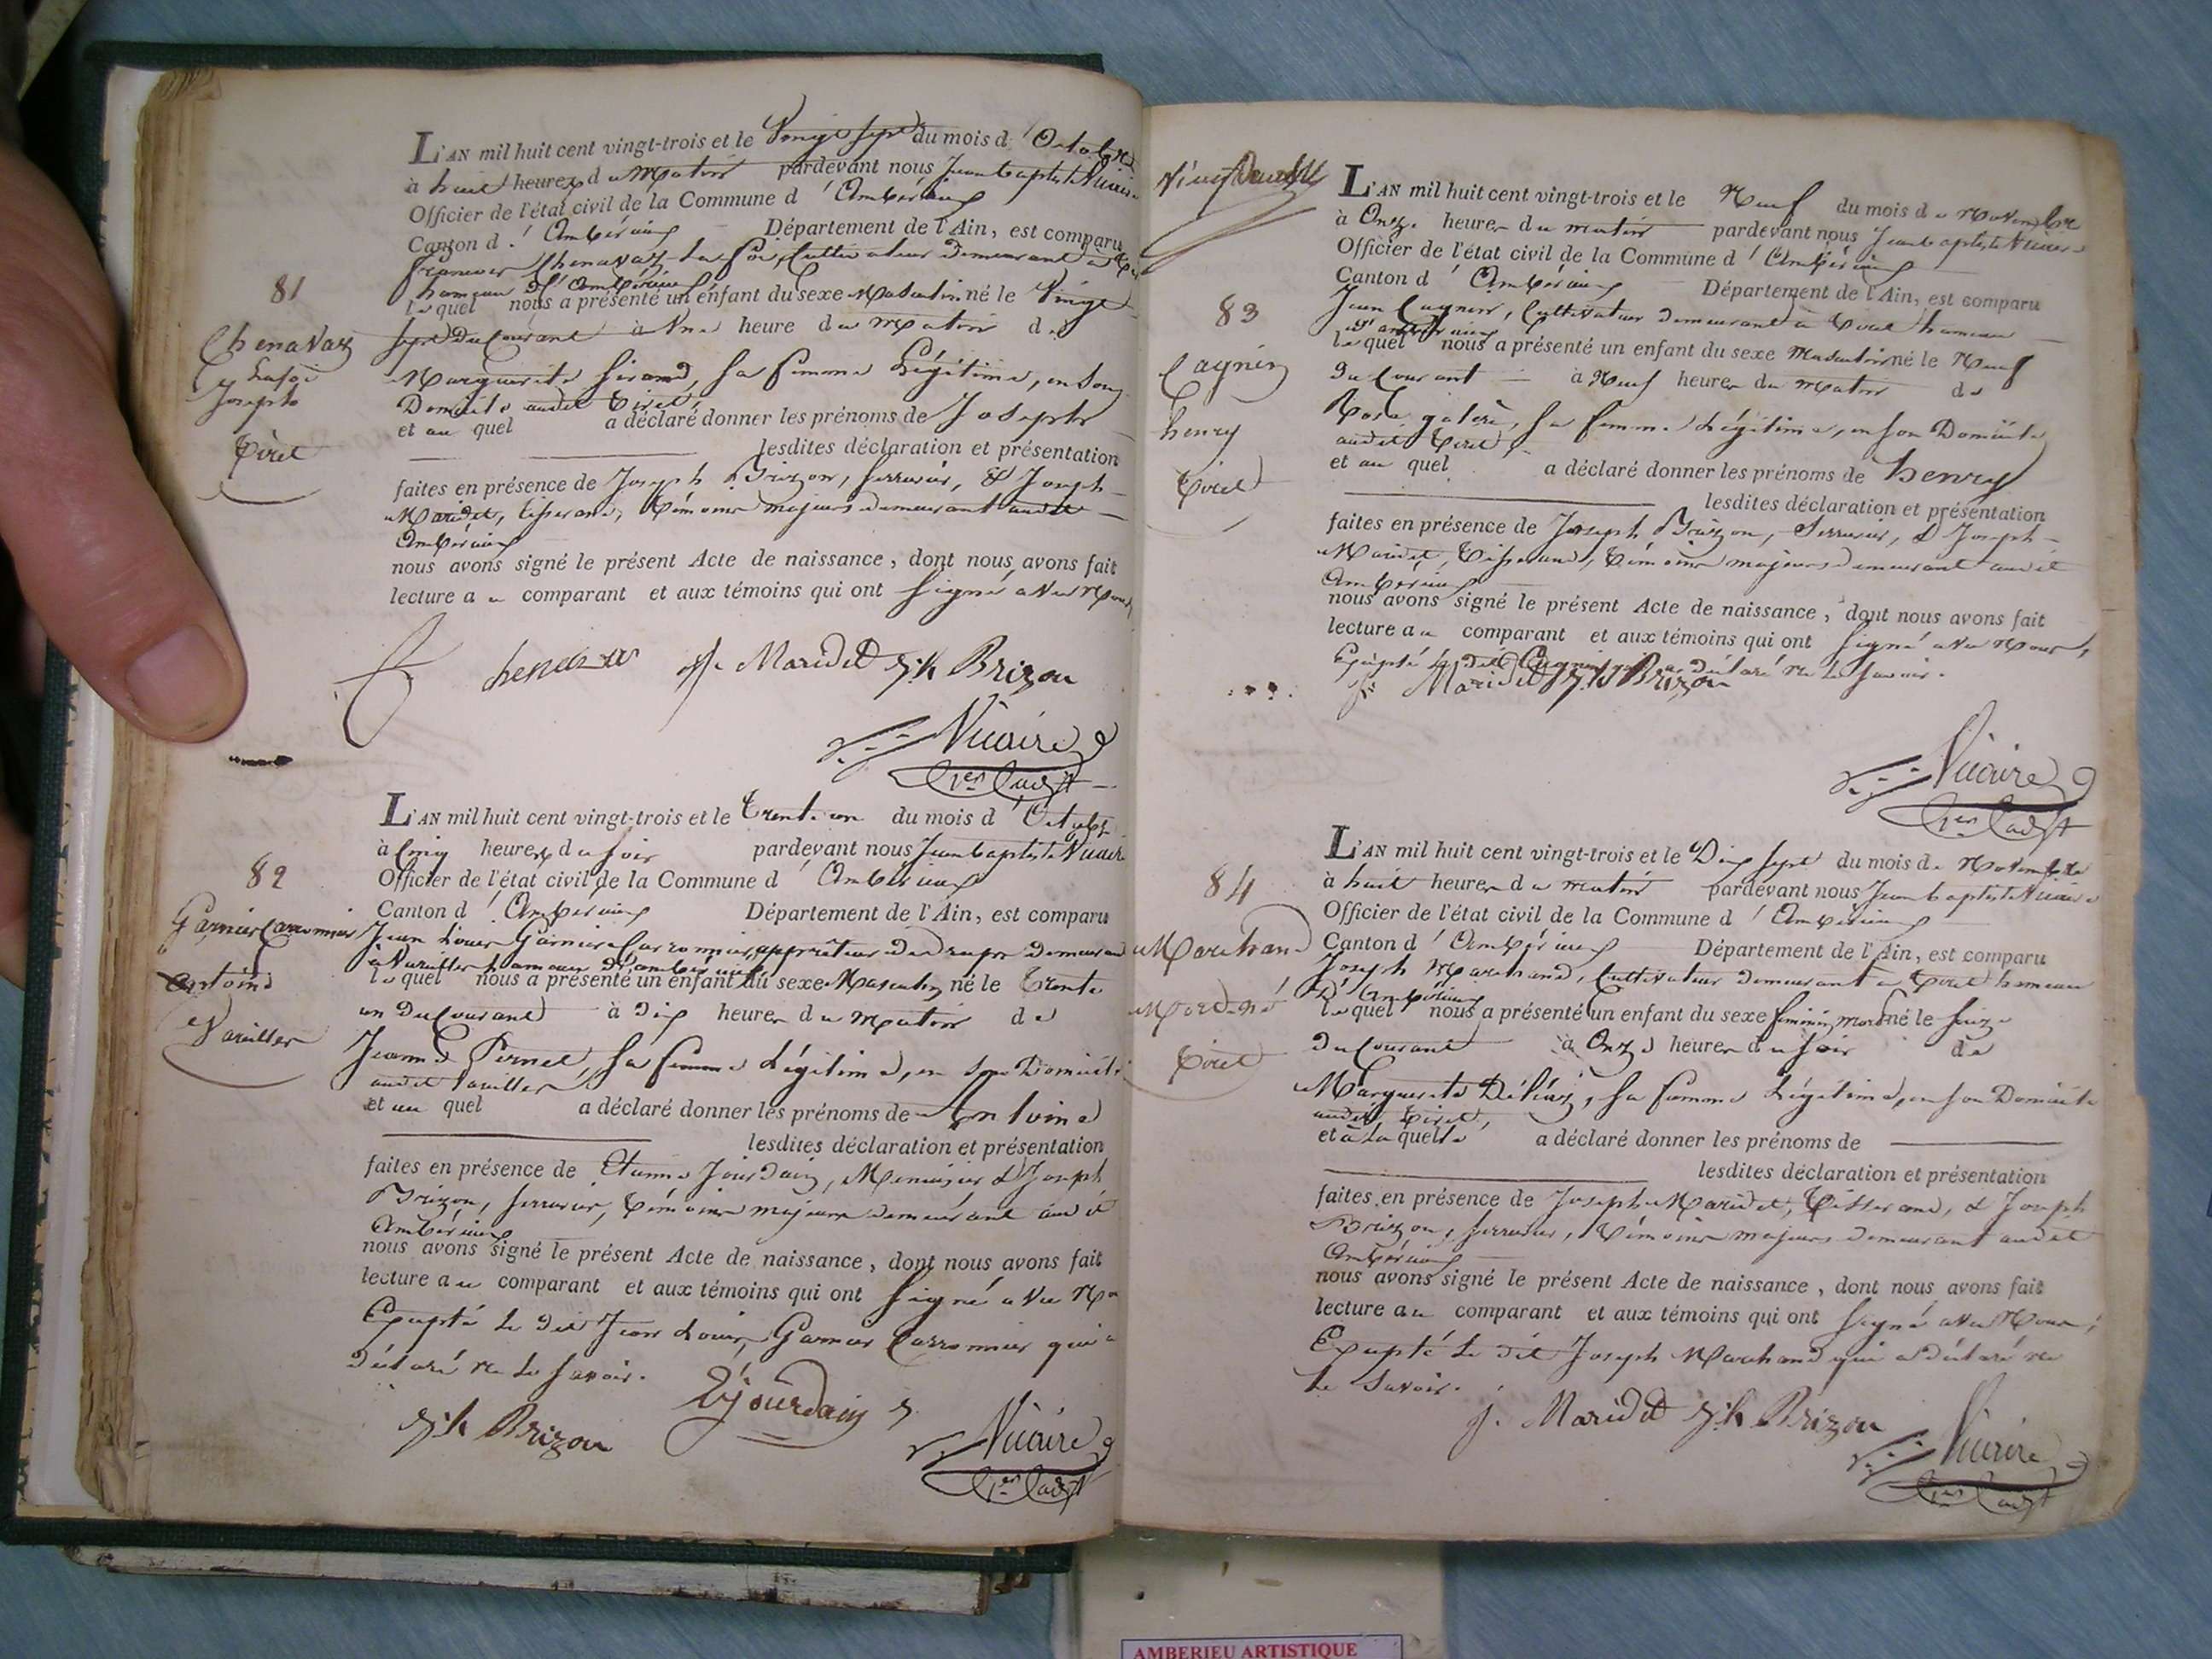 L'AN mil huit cent vingt-trois et le Vingt sept du mois d'Octobre
à huit heures du Matin pardevant nous Jean baptiste Vicaire
Officier de l'état civil de la Commune d'Ambérieux
Canton d'Ambérieux Département de l'Ain, est comparu
françois Chenavaz Lafoi, Cultivateur demeurant à
hameau d'Ambérieux
81
lequel nous a présenté un enfant du sexe Masculin né le Vingt
Chenavaz
Lafoi
Joseph
Tiret
sept Du Courant à Une heure du Matin de
Marguerite Sirand, Sa femme Légitime, en Son
Domicile audit Tiret
et au quel a déclaré donner les prénoms de Joseph
lesdites déclaration et présentation
faites en présence de Joseph Brizon, Serrurier, & Joseph
Maridet, tisserand, témoins majeurs demeurant audit
Ambérieux
nous avons signé le présent Acte de naissance, dont nous avons fait
lecture au comparant et aux témoins qui ont Signé avec Nous
J. Maridet Jh Brizon
Vicaire
1er Cadjt
L'AN mil huit cent vingt-trois et le Trente un du mois d'Octobre
à Cinq heures du Soir pardevant nous Jean baptiste Vicaire
82
Officier de l'état civil de la Commune d'Ambérieux
Canton d'Ambérieux Département de l'Ain, est comparu
Garnier Carronnier
Antoine
Vareilles
Jean Louis Garnier Carronnier, apprêteur de draps demeurant
à Vareilles hameau D'ambérieux
lequel nous a présenté un enfant du sexe Masculin né le Trente
un Du Courant à Dix heures du Matin de
Jeanne Pernet, Sa femme Légitime, en son Domicile
audit Vareilles
et au quel a déclaré donner les prénoms de Antoine
lesdites déclaration et présentation
faites en présence de Etienne Jourdain, Menuisier & Joseph
Brizon, Serrurier, témoins majeurs demeurant audit
Ambérieux
nous avons signé le présent Acte de naissance, dont nous avons fait
lecture au comparant et aux témoins qui ont Signé avec
Excepté le dit Jean Louis Garnier Carronnier qui a
déclaré ne le Savoir.
Jh Brizon Jourdain
Vicaire
1er Cadjt
L'AN mil huit cent vingt-trois et le Neuf du mois de Novembre
à Onze heures du matin pardevant nous Jean baptiste Vicaire
Officier de l'état civil de la Commune d'Ambérieux
Canton d'Ambérieux Département de l'Ain, est comparu
83
Cagnin
henry
Tiret
Jean Cagnin, Cultivateur demeurant à Tiret hameau
d'ambérieux
lequel nous a présenté un enfant du sexe Masculin né le Neuf
du Courant à Neuf heures du Matin de
Sa femme Légitime, en Son Domicile
audit Tiret
et au quel a déclaré donner les prénoms de henry
lesdites déclaration et présentation
faites en présence de Joseph Brizon, Serrurier, & Joseph
Maridet, Tisserand, témoins majeurs demeurant audit
Ambérieux
nous avons signé le présent Acte de naissance, dont nous avons fait
lecture au comparant et aux témoins qui ont Signé avec Nous,
Excepté le dit Cagnin qui a déclaré ne le Savoir.
J. Maridet Jh Brizon
Vicaire
1er Cadjt
L'AN mil huit cent vingt-trois et le Dix Sept du mois de Novembre
84
à huit heures du matin pardevant nous Jean baptiste Vicaire
Officier de l'état civil de la Commune d'Ambérieux
Canton d'Ambérieux Département de l'Ain, est comparu
Marchand
Mord-né
Tiret
Joseph Marchand, Cultivateur demeurant à Tiret hameau
D'Ambérieux
lequel nous a présenté un enfant du sexe féminin, mord né le Seize
du Courant à Onze heures du Soir de
Marguerite Sa femme Légitime, en Son Domicile
audit Tiret,
et à la quelle a déclaré donner les prénoms de
lesdites déclaration et présentation
faites en présence de Joseph Maridet, Tisserand, & Joseph
Brizon, Serrurier, témoins majeurs demeurant audit
Ambérieux
nous avons signé le présent Acte de naissance, dont nous avons fait
lecture au comparant et aux témoins qui ont Signé avec Nous,
Excepté le dit Joseph Marchand qui a déclaré ne
le Savoir.
J. Maridet Jh Brizon
Vicaire
1er Cadjt
AMBERIEU ARTISTIQUE